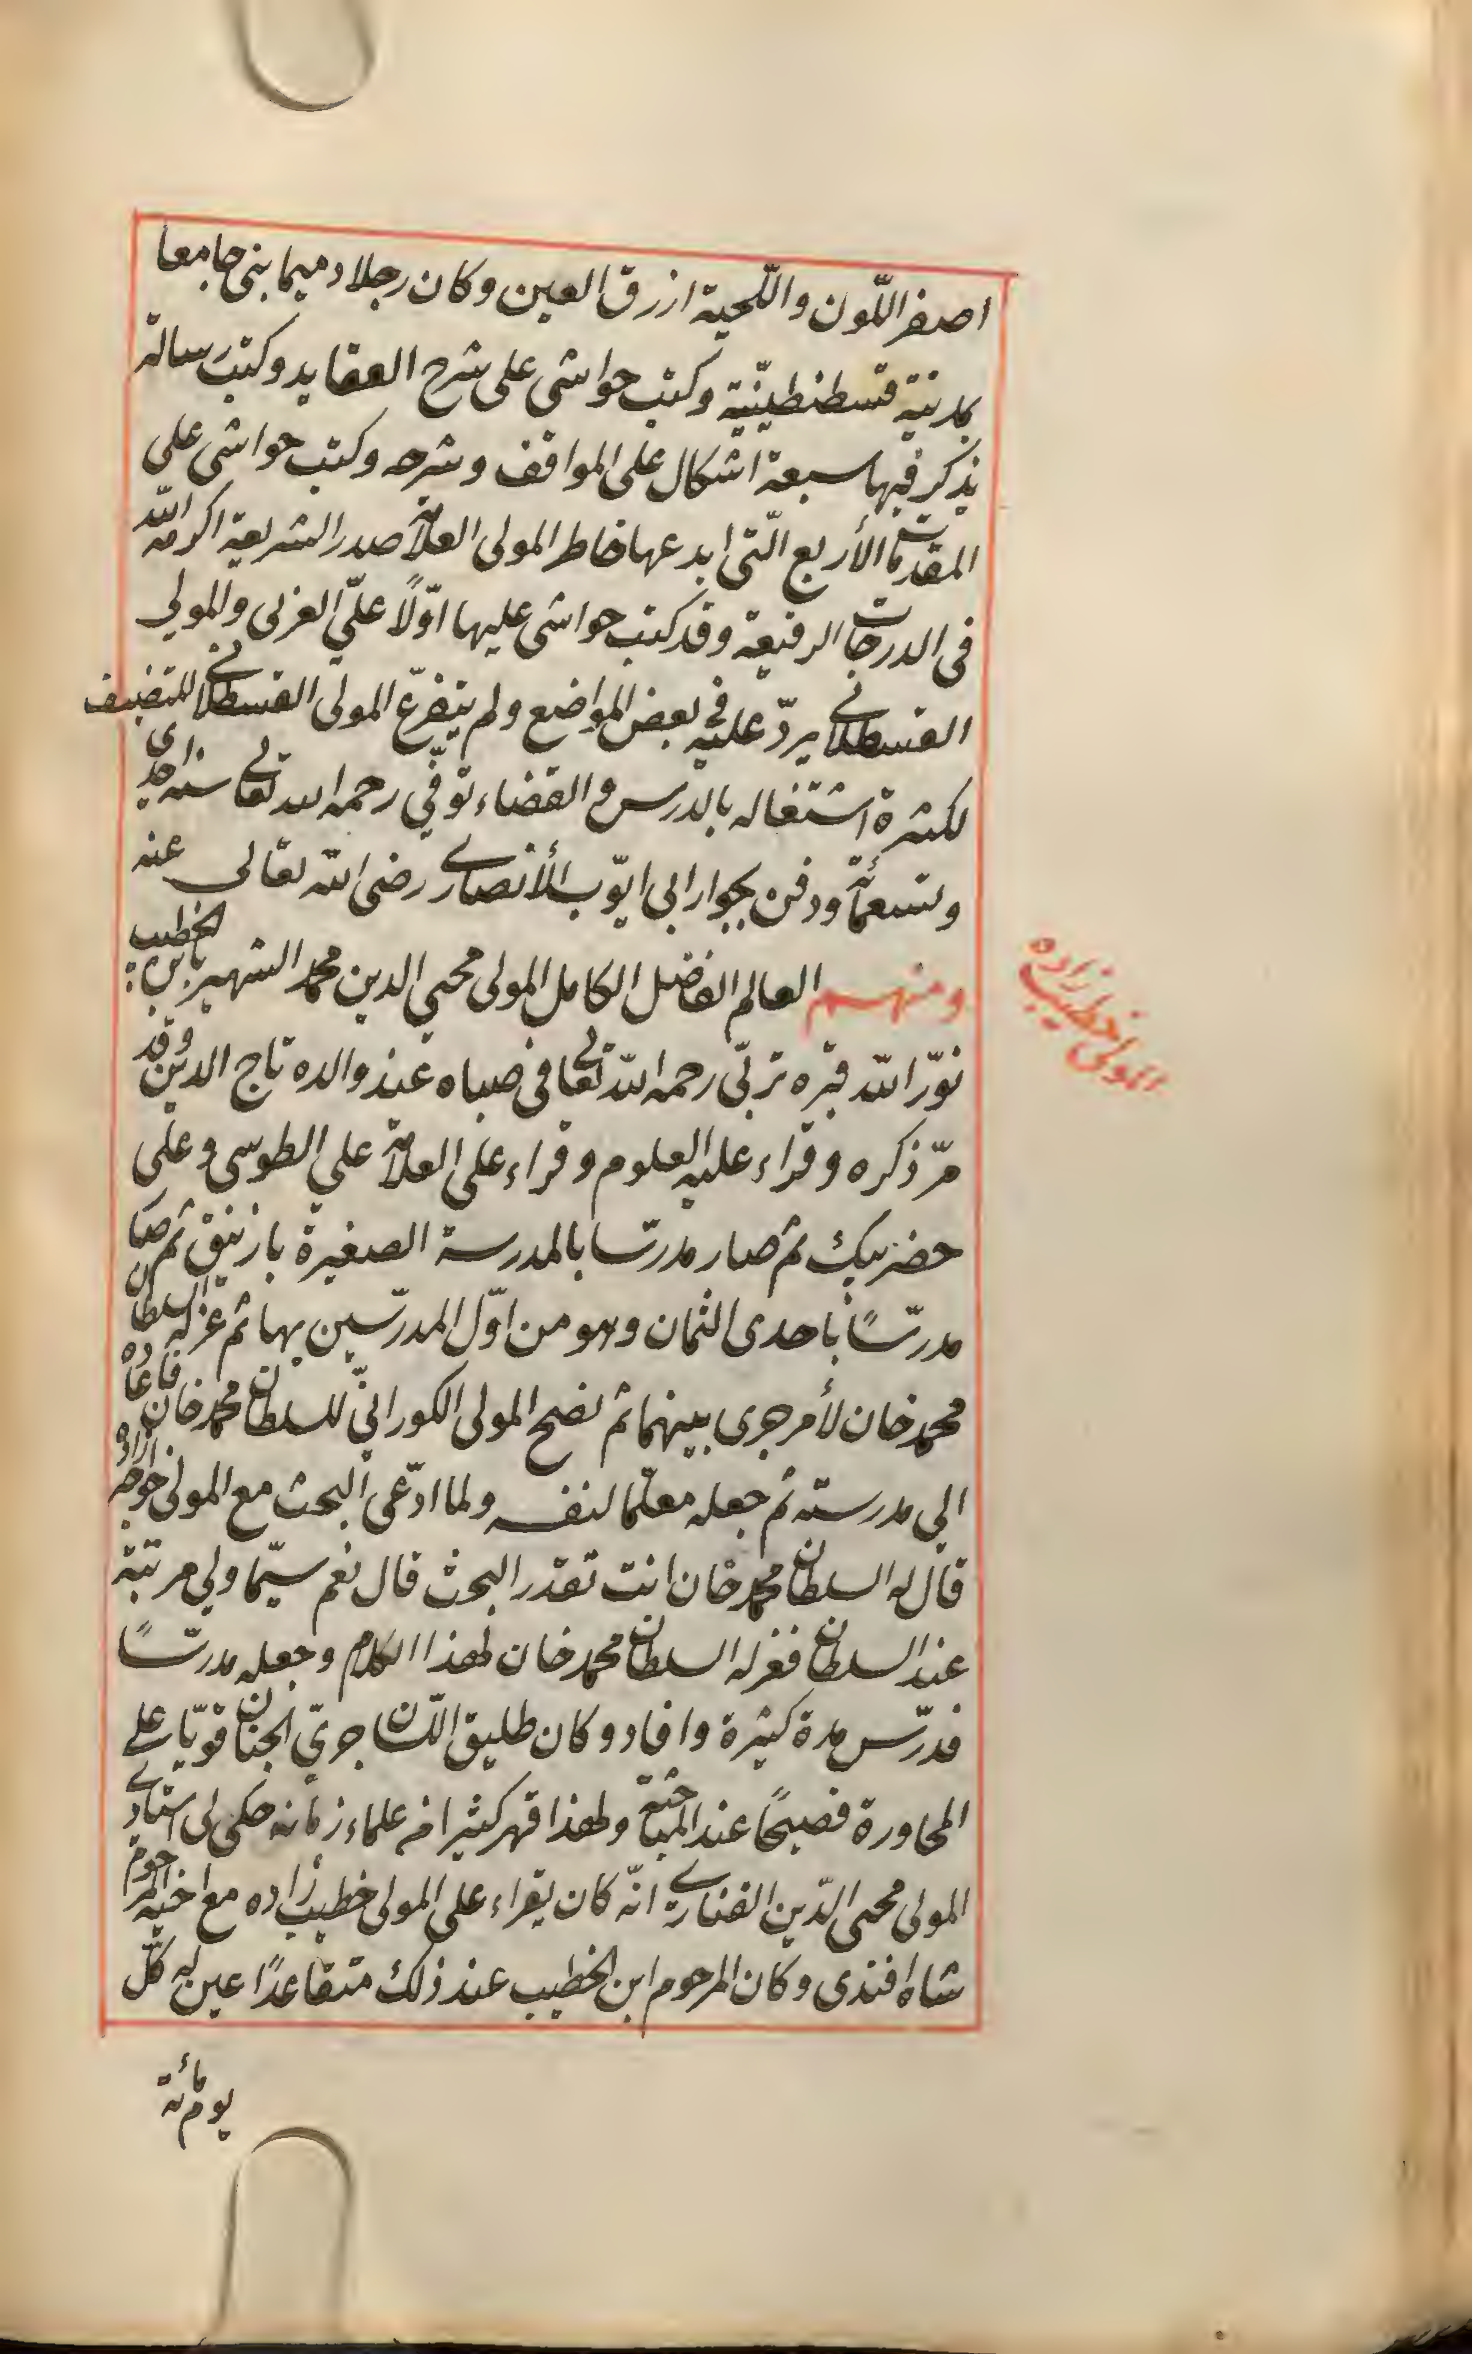 اصفر اللّون واللّحية ازرق العين وكان رجلا دميما بنى جامعا
بمدينة قسطنطينّية وكتب حواشى على شرح العقايد وكتب رسالة
يذكر فيها سبعة اشكال على المواقف وشرحه وكتب حواشى على
المقدمات الأربع الّتى ابدعها خاطر المولى العلاّمة صدر الشريعة اكرمه الله
فى الدرجات الرفيعة وقد كتب حواشى عليها اوّلاً علىّ العربى والمولى
القسطلانى يردّ عليه فى بعض المواضع ولم يتفرّغ المولى القسطلانى للتصنيف
لكثرة اشتغاله بالدرس والقضاء توفّى رحمه الله تعالى سنه احدى
وتسعمأئة ودفن بجوار ابى ايّوب الأنصارى رضى الله تعالى عنه
ومنهم العالم الفاضل الكامل المولى محيى الدين محمد الشهير بابن الخطيب
المولى خطيب زاده
نوّر الله قبره تربّى رحمه الله تعالى فى صباه عند والده تاج الدين وقد
مرّ ذكره وقراء عليه العلوم وقراء على العلاّمة على الطوسى وعلى
حضر بيك ثم صار مدرّسا بالمدرسة الصغيرة بازنيق ثم صار
مدرّسًا باحدى الثمان وهو من اوّل المدرّسين بها ثم عزله السلطان
محمد خان لأمر جرى بينهما ثم نصح المولى الكورانىّ للسلطان محمد خان فاعاده
الى مدرسته ثم جعله معلّما لنفسه ولما ادّعى البحث مع المولى خوجه زاده
قال له السلطان محمد خان انت تقدر البحث قال نعم سيّما ولى مرتبة
عند السلطان فعزله السلطان محمد خان لهذا الكلام وجعله مدرّسًا
فدرّس مدة كثيرة وافاد وكان طليق اللّسان جرىّ الجنان قويّا على
المحاورة فصيحًا عند المباحثة ولهذا قهر كثيرا من علماء زمانه حكى لى استادى
المولى محيى الدّين الفنارى انّه كان يقراء على المولى خطيب زاده مع اخيه المرحوم
شاه افندى وكان المرحوم ابن الخطيب عند ذلك متقاعدًا عين له كلّ
يوم مائة